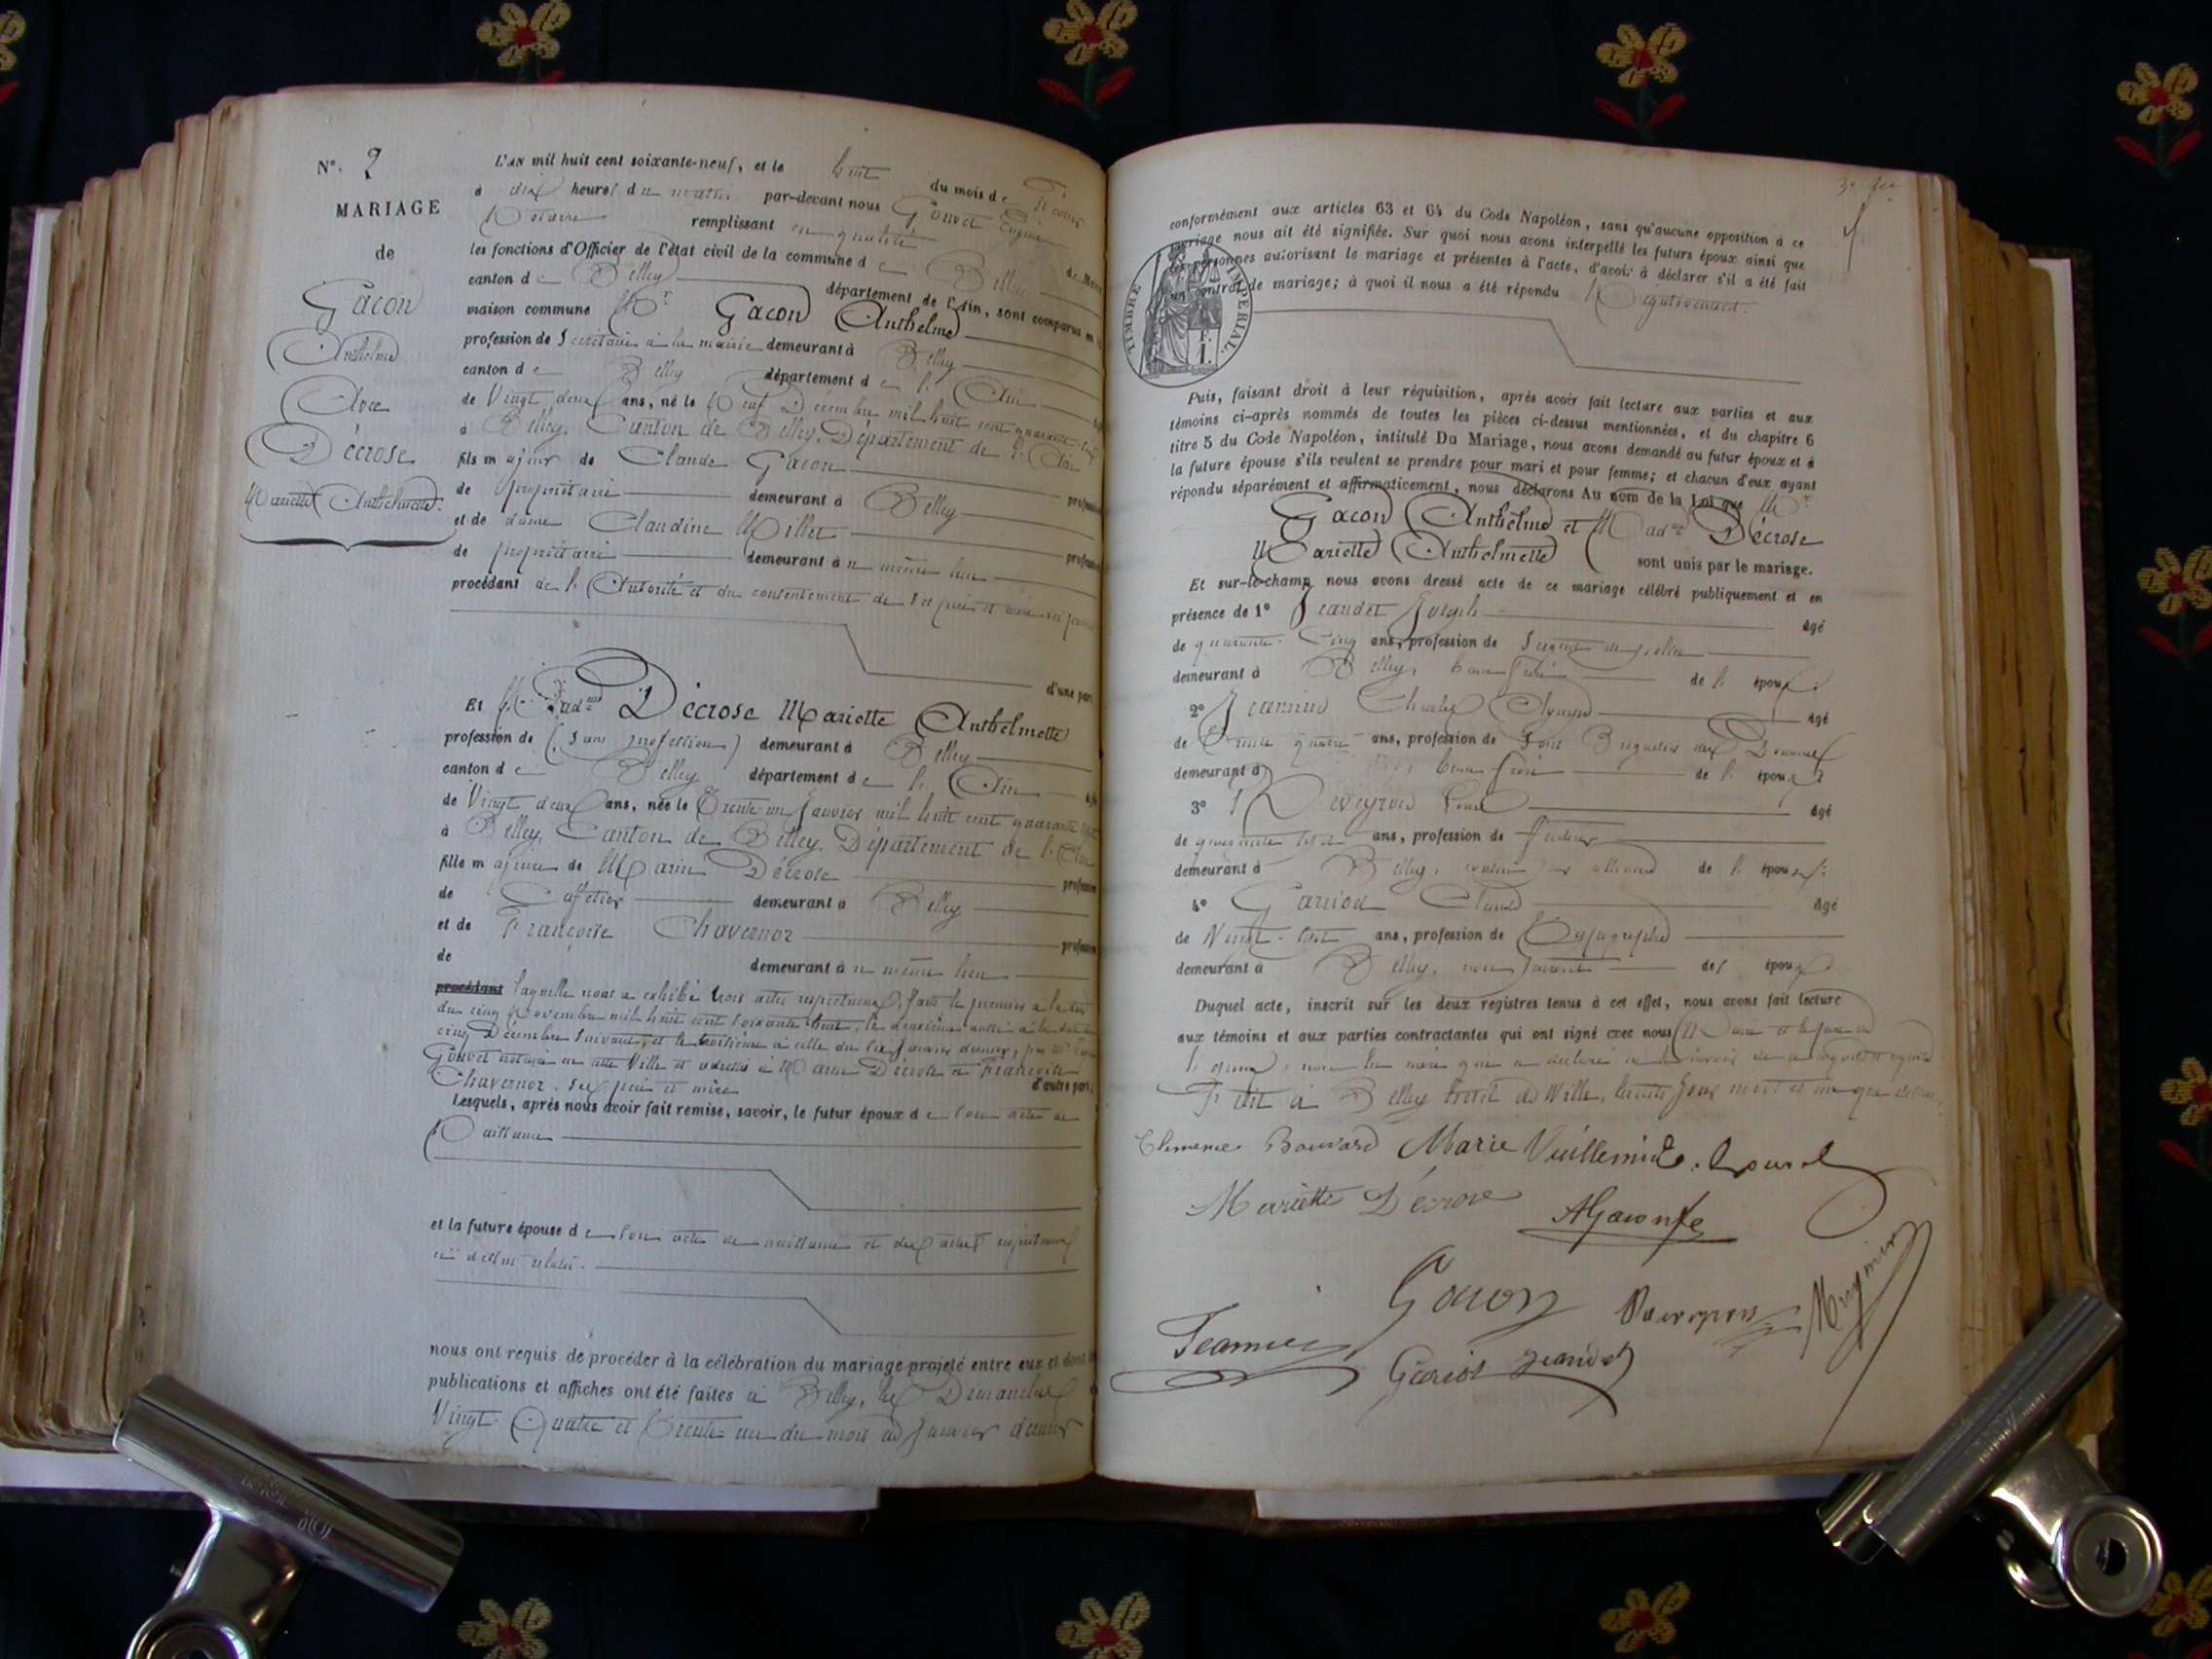 N°. 2
MARIAGE
de
Gacon
Anthelme
Avec
Décrose
Mariette Anthelmette.
L'AN mil huit cent soixante-neuf, et le huit du mois de Février
à dix heures du matin par-devant nous Gouvet Eugène
Notaire remplissant en qualité de Maire
les fonctions d'Officier de l'état civil de la commune de Belley
canton de Belley département de l'Ain, sont comparus en la
maison commune Mr Gacon Anthelme
profession de Secrétaire à la mairie demeurant à Belley
canton de Belley département de l'Ain
de Vingt deux ans, né le Neuf Décembre mil huit cent quarante
à Belley, Canton de Belley, Département de l'Ain
fils majeur de Claude Gacon profession
de propriétaire demeurant à Belley
et de dame Claudine Millet profession
de propriétaire demeurant à même lieu
procédant de l'Autorité et du consentement de Ses père et mère
d'une part
Et Madlle Décrose Mariette Anthelmette
profession de (sans profession) demeurant à Belley
canton de Belley département de l'Ain
de Vingt deux ans, née le Trente un Janvier mil huit cent quarante
à Belley, Canton de Belley, Département de l'Ain
fille majeure de Marin Décrose profession
de Cafetier demeurant à Belley
et de Françoise Chavernoz profession
de demeurant à même lieu
procédant laquelle nous a exhibé trois actes respectueux, faits le premier à la date
du cinq Novembre mil huit cent soixante huit, le deuxième
cinq Décembre Suivant, et le troisième à celle du six Janvier dernier, par
Gouvet notaire en cette Ville et adressés à Marin Décrose et Françoise
Chavernoz, ses père et mère d'autre part;
Lesquels, après nous avoir fait remise, savoir, le futur époux de son acte de
Naissance
et la future épouse de son acte de naissance et des actes respectueux
ci dessus relatés.
nous ont requis de procéder à la célébration du mariage projeté entre eux et dont les
publications et affiches ont été faites à Belley, les Dimanches
Vingt-Quatre et Trente-un du mois de Janvier dernier
conformément aux articles 63 et 64 du Code Napoléon, sans qu'aucune opposition à ce
mariage nous ait été signifiée. Sur quoi nous avons interpellé les futurs époux ainsi que
les personnes autorisant le mariage et présentes à l'acte, d'avoir à déclarer s'il a été fait
un contrat de mariage; à quoi il nous a été répondu Négativement.
TIMBRE IMPERIAL.
1 F.
Puis, faisant droit à leur réquisition, après avoir fait lecture aux parties et aux
témoins ci-après nommés de toutes les pièces ci-dessus mentionnées, et du chapitre 6
titre 5 du Code Napoléon, intitulé Du Mariage, nous avons demandé au futur époux et à
la future épouse s'ils veulent se prendre pour mari et pour femme; et chacun d'eux ayant
répondu séparément et affirmativement, nous déclarons Au nom de la Loi que Mr
Gacon Anthelme et Madlle Décrose
Mariette Anthelmette sont unis par le mariage.
Et sur-le-champ nous avons dressé acte de ce mariage célébré publiquement et en
présence de 1° Jeandet Joseph âgé
de quarante-Cinq ans, profession de Sergent de police
demeurant à Belley, beau frère de l'époux;
2° Jeannin Charles âgé
de Trente quatre ans, profession de Sous Brigadier des Douanes
demeurant à beau frère de l'époux;
3° Deveyron âgé
de quarante ans, profession de
demeurant à Belley, de l'épouse;
4° Gariod Claude âgé
de Vingt-sept ans, profession de Typographe
demeurant à Belley, non parent des époux.
Duquel acte, inscrit sur les deux registres tenus à cet effet, nous avons fait lecture
aux témoins et aux parties contractantes qui ont signé avec nous Maire et le père de
l'époux, non la mère qui a déclaré ne le savoir de ce
Fait à Belley hôtel de Ville, les dits Jour mois et an que dessus.
Clémence Bouvard Marie Vuillemin E. Gouvet
Mariette Décrose AGacon fils
Gacon
Jeannin Gariod Jeandet